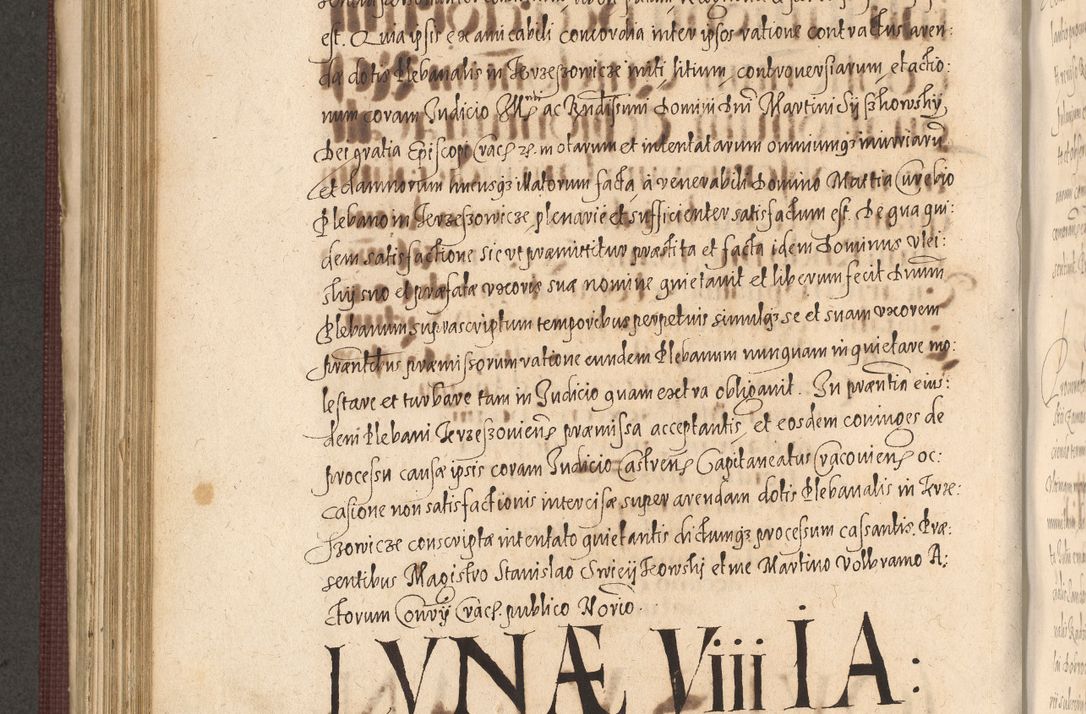 est. Quia ipsis ex amicabili concordia inter ipsos ratione contractus aren:
dæ dotis Plebanalis in Jerzeszowicze initi litium, controversiarum, et actio:
num coram Judicio Illmi ac Rndissimi Domini Dni Martini Sijszkowskij
Dei gratia Episcopi Crac: etc. motarum et intentatarum omniumqз iniuriarũ
et damnorum hincusqз illatorum facta à venerabili Domino Mattia Curebio
Plebano in Jerzeszowicze, plenarie et sufficienter satisfactum est. De qua qui:
dem satisfactione sic ut præmittitur præstita et facta idem Dominus
skij suo et præfatæ uxoris suæ nomine quietavit et liberum fecit Dnum
Plebanum suprascriptum temporibus perpetuis simulqз se et suam uxorem
præmissorum ratione eundem Plebanum nunquam inquietare mo:
lestare et turbare tam in Judicio quam extra obligavit. In præntia eius:
dem Plebani Jerzeszoviens præmissa acceptantis, et eosdem coniuges de
processu causæ ipsis coram Judicio Castrens Capitaneatus Cracoviens oc:
casione non satisfactionis intercisæ super arendam dotis Plebanalis in Jerze:
szowicze conscriptæ intentato quietantis dictumqз processum cassantis. Præ:
sentibus Magistro Stanislao et me Martino Volbramo A:
ctorum Conrÿ Crac. publico Norio.
LVNÆ Viii IA: